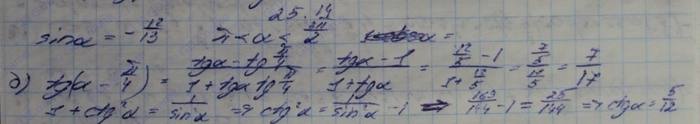 25.14
sinα = -12/13   π < α < 3π/2   α =
б) tg(α - π/4) = (tgα - tg π/4)/(1 + tgα tg π/4) = (tgα - 1)/(1 + tgα) = (12/5 - 1)/(1 + 12/5) = (7/5)/(17/5) = 7/17
1 + ctg²α = 1/sin²α ⇒ ctg²α = 1/sin²α - 1 ⇒ 169/144 - 1 = 25/144 ⇒ ctgα = 5/12